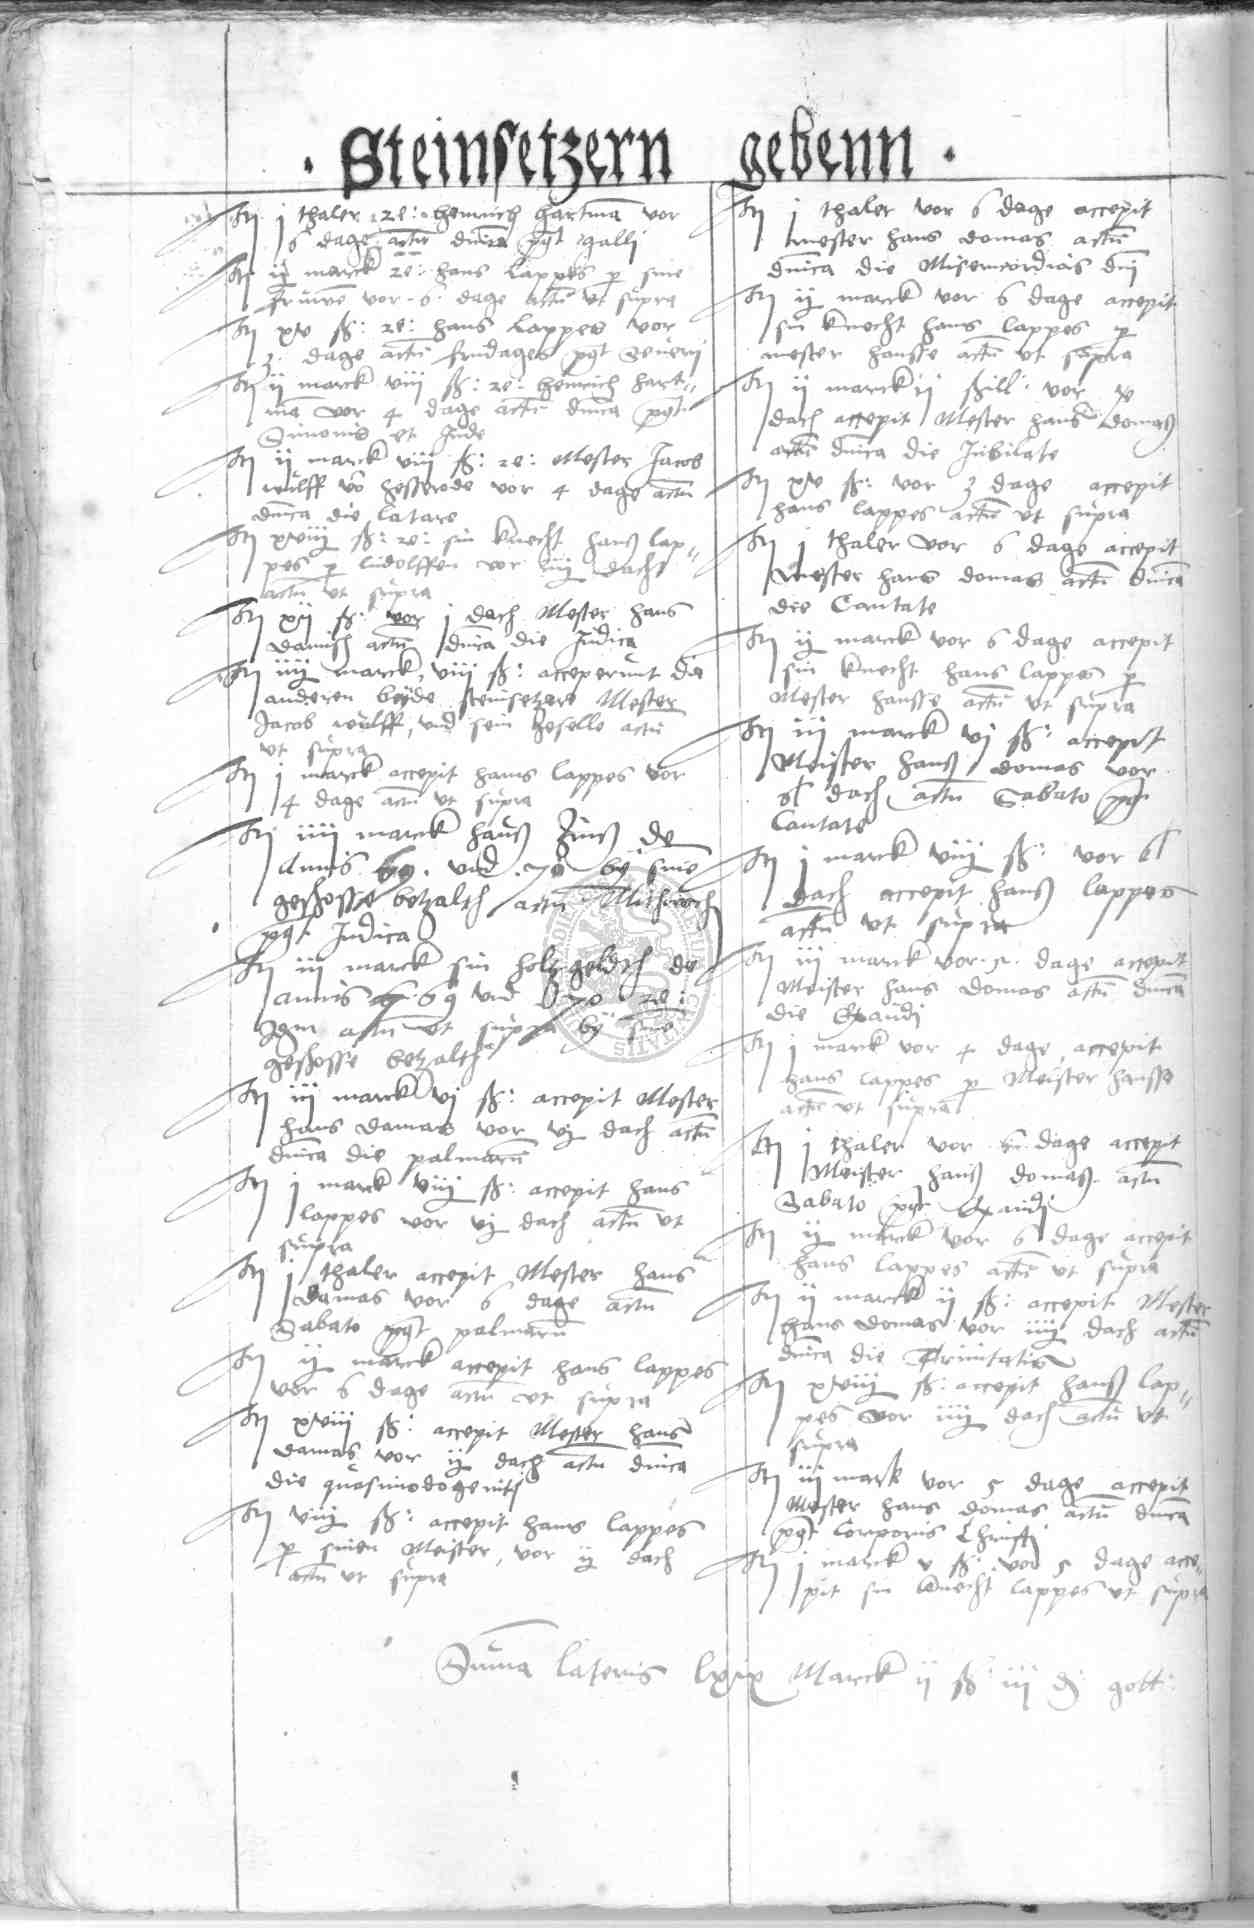 · Steinsetzern gebenn ·
It j thaler re: heinrich hartmā vor
6 dage actū dnīca pꝰt galli
It ij marck re: hans lappes p sine
fruwē vor 6 dage actū vt supra
It xv ß: re: hans lappes vor
3 dage actū fridages pꝰt Severij
It ij marck viij ß: re: heinrich hart-
mā vor 4 dage actū dnīca pꝰt
Simonis et Jude
It ij marck viij ß: re: Mester Jacob
wulff vō hesserode vor 4 dage actū
dnīca die latare
It xviij ß: re: sin knecht hans lap-
pes p ludolffen vor iiij dach
actū vt supra
It xij ß: vor j dach Mester hans
actū dnīca die Judica
It iiij marck viij ß: acceperunt die
anderen beyde steinsetzere Mester
Jacob wulff, vnd sein geselle actū
vt supra
It j marck accepit hans lappes vor
4 dage actū vt supra
It iiij marck hans de
Annis 69 vnd 70 by sine
geschosse betzalth actū Mithwoch
pꝰt Judica
It iij marck sin holtzgeldth de
annis 69 vnd 70 re:
actū vt supra by sine
geschosse betzalth
It iij marck vj ß: accepit Mester
hans damas vor vj dach actū
dnīca die palmarū
It j marck viij ß: accepit hans
lappes vor vj dach actū vt
supra
It j thaler accepit Mester hans
damas vor 6 dage actū
Sabato pꝰt palmarū
It ij marck accepit hans lappes
vor 6 dage actū vt supra
It xviij ß: accepit Mester hans
damas vor ij dach actū dnīca
die quasimodogeniti
It viij ß: accepit hans lappes
p sinen Meister, vor ij dach
actū vt supra
It j thaler vor 6 dage accepit
mester hans domas actū
dnīca die Misericordias dnī
It ij marck vor 6 dage accepit
sin knecht hans lappes p
mester hansse actū vt supra
It ij marck ij ßill: vor
dach accepit Mester hans domas
actū dnīca die Jubilate
It xv ß: vor 3 dage accepit
hans lappes actū vt supra
It j thaler vor 6 dage accepit
Mester hans domas actū dnīca
die Cantate
It ij marck vor 6 dage accepit
sin knecht hans lappes p
Mester hansse actū vt supra
It iij marck vj ß: accepit
Meister hans domas vor
dach actū Sabato pꝰt
Cantate
It j marck viij ß: vor
dach accepit hans lappes
actū vt supra
It iij marck vor 5 dage accepit
Meister hans domas actū dnīca
die Exaudi
It j marck vor 4 dage accepit
hans lappes p Meister hansse
actū vt supra
It j thaler vor 6 dage accepit
Meister hans domas actū
Sabato pꝰt Exaudi
It ij marck vor 6 dage accepit
hans lappes actū vt supra
It ij marck ij ß: accepit Mester
hans domas vor iiij dach actū
dnīca die Trinitatis
It xviij ß: accepit hans lap-
pes vor iiij dach actū vt
supra
It iij mark vor 5 dage accepit
Mester hans domas actū dnīca
pꝰt Corporis Christi
It j marck v ß: vor 5 dage acce-
pit sin knecht lappes vt supra
Suma lateris lxix Marck ij ß iij d gott: